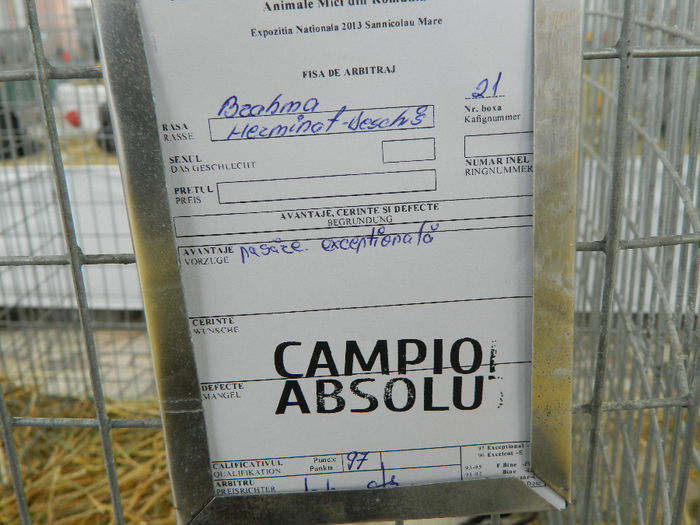 Animale Mici din Romania
Expozitia Nationala 2013 Sannicolau Mare
FISA DE ARBITRAJ
21
Nr. boxa
Kafignummer
Brahma
RASA
RASSE
Herminat-deschis
SEXUL
DAS GESCHLECHT
NUMAR INEL
RINGNUMMER
PRETUL
PREIS
AVANTAJE, CERINTE SI DEFECTE
BEGRUNDUNG
AVANTAJE pasăre excepțională
VORZUGE
CERINTE
WUNSCHE
CAMPIO
ABSOLU
DEFECTE
MANGEL
CALIFICATIVUL Puncte 97
QUALIFIKATION Punkte
97 Exceptional
96 Excelent -E
93-95 F.Bine
91-92 Bine
ARBITRU
PREISRICHTER